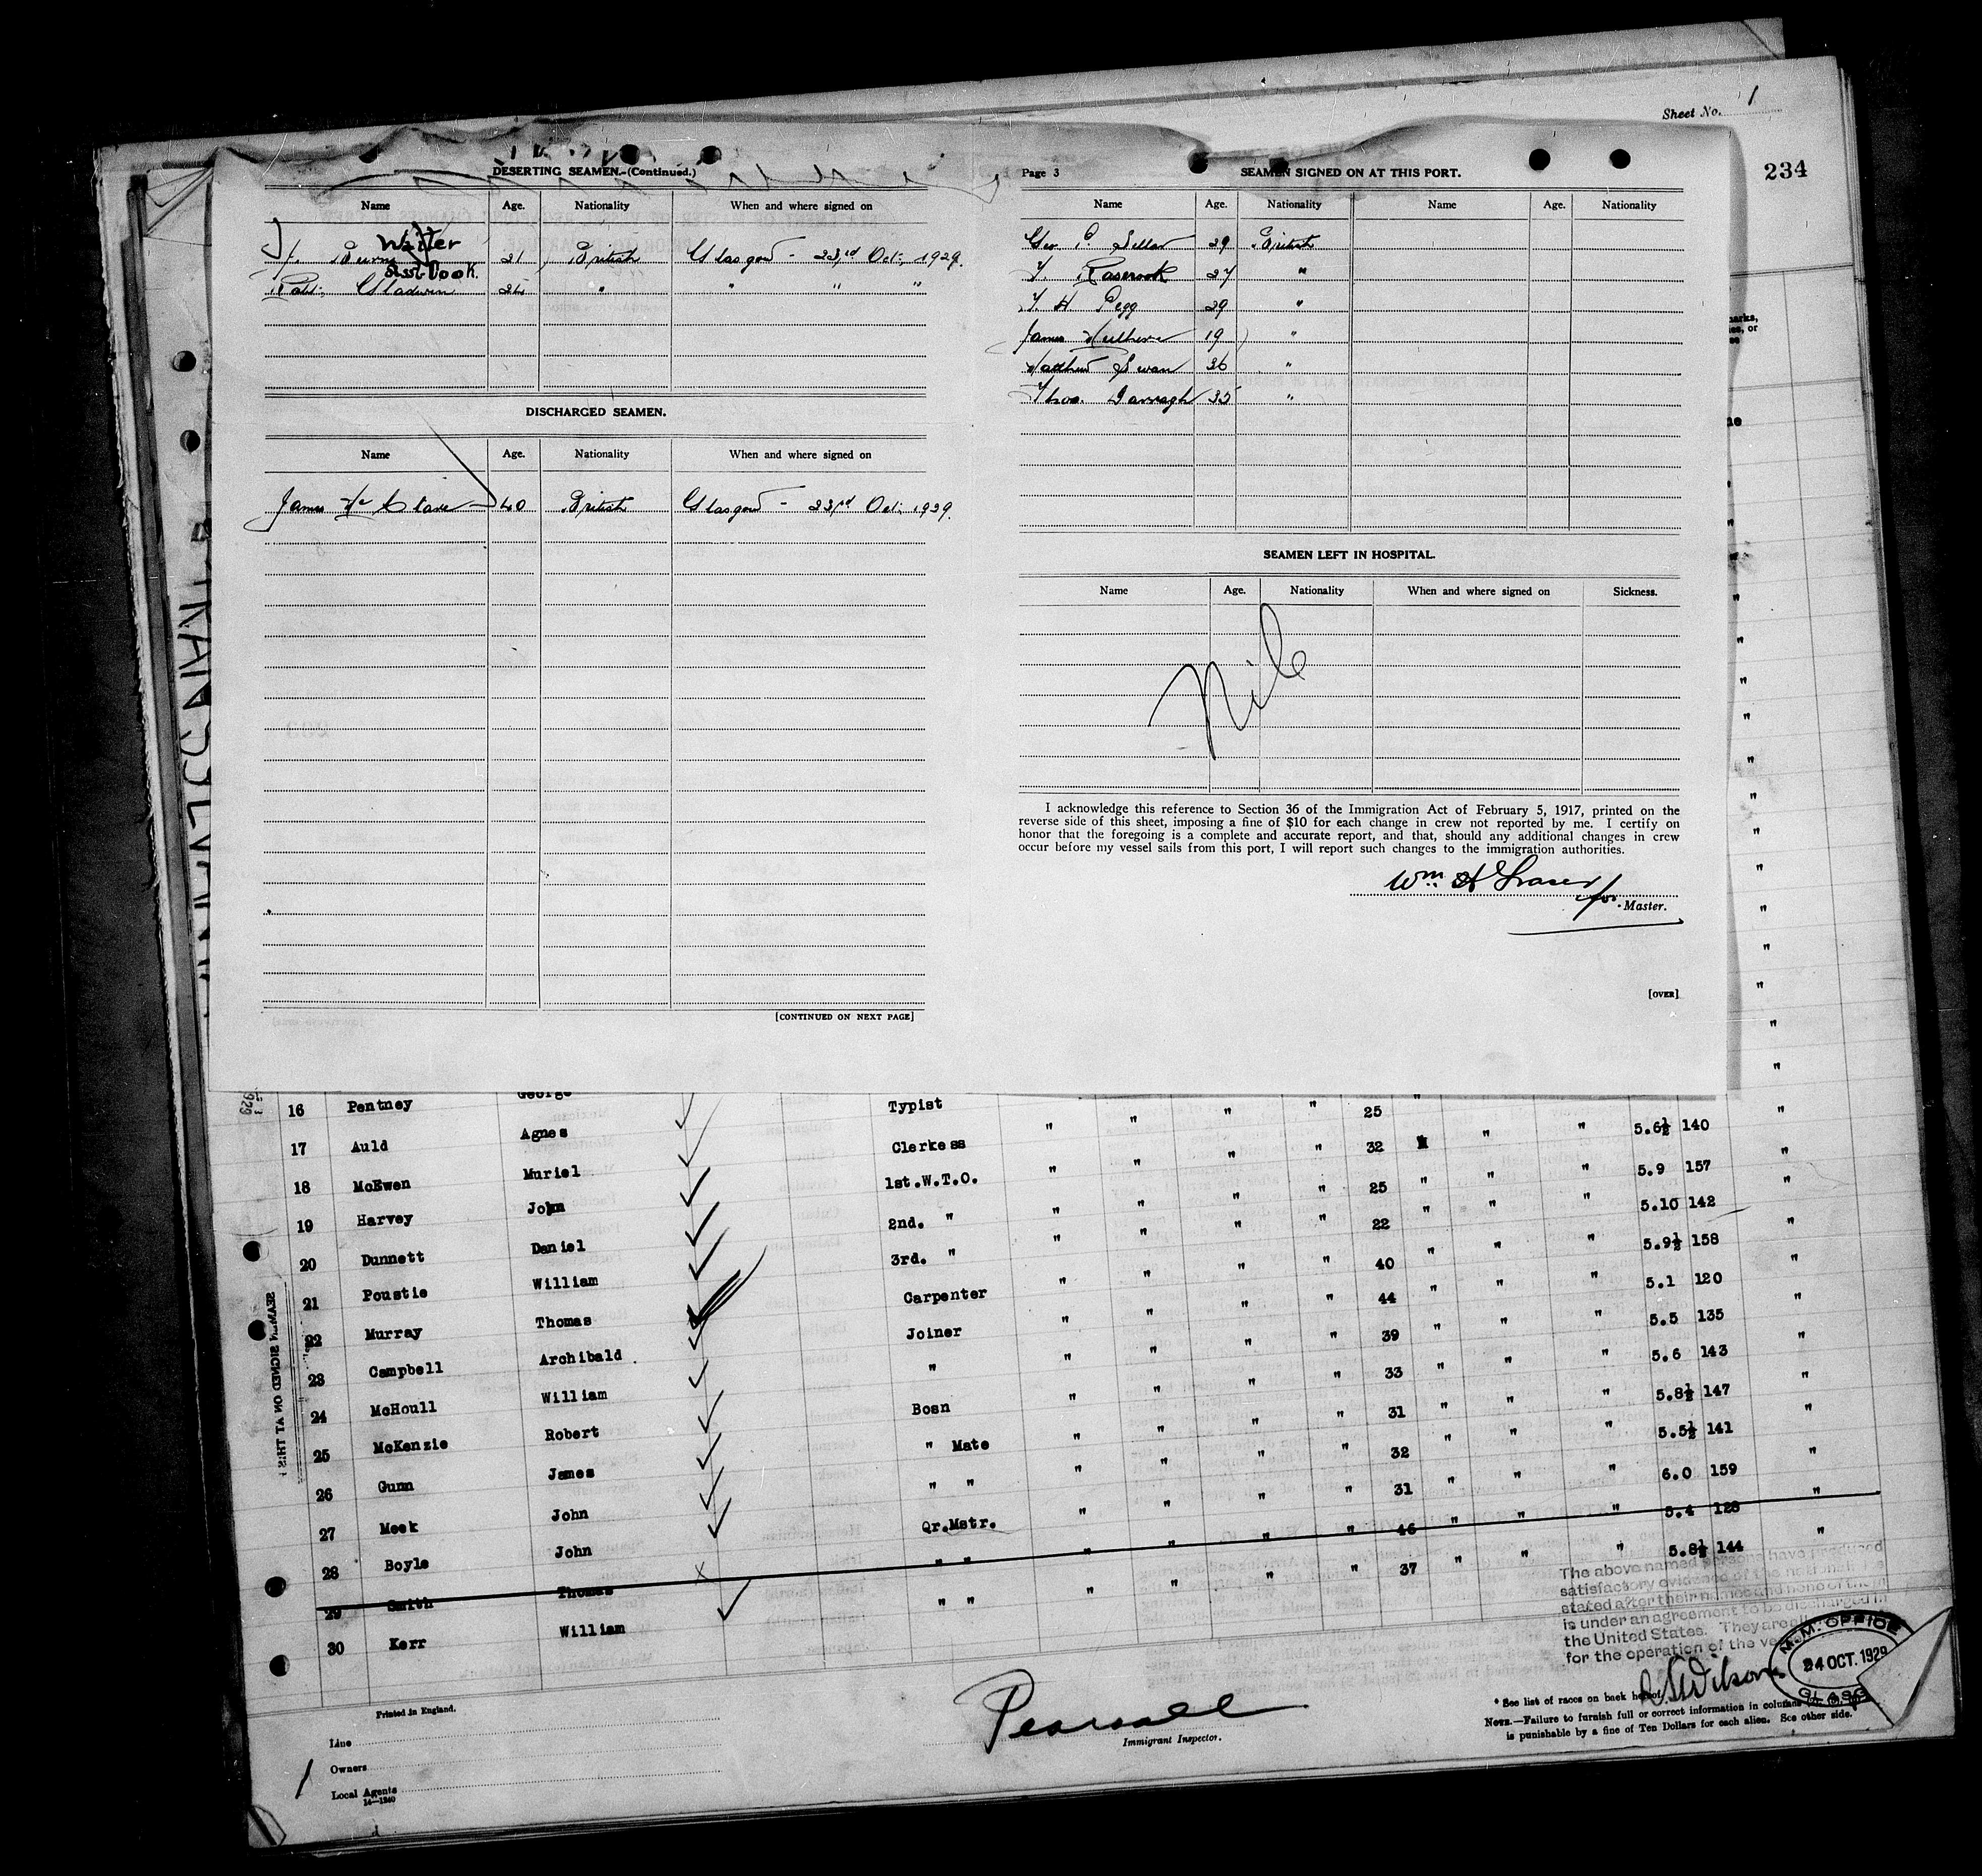 Sheet No. 1
234
DESERTING SEAMEN.-(Continued.)
Name Age. Nationality When and where signed on
Waiter
J. Burns 21 British Glasgow - 23rd Oct; 1929.
Asst Cook.
Robt: Gladwin 24 " " " "
DISCHARGED SEAMEN.
Name Age. Nationality When and where signed on
James 40 British Glasgow - 23rd Oct; 1929.
[CONTINUED ON NEXT PAGE]
Page 3 SEAMEN SIGNED ON AT THIS PORT.
Name Age. Nationality Name Age. Nationality
Geo P. Sellar 29 British
27 "
H Pegg 29 "
James 19 "
Matthew Swan 36 "
Thos. Darragh 35 "
SEAMEN LEFT IN HOSPITAL.
Name Age. Nationality When and where signed on Sickness.
Nil
I acknowledge this reference to Section 36 of the Immigration Act of February 5, 1917, printed on the
reverse side of this sheet, imposing a fine of $10 for each change in crew not reported by me. I certify on
honor that the foregoing is a complete and accurate report, and that, should any additional changes in crew
occur before my vessel sails from this port, I will report such changes to the immigration authorities.
Wm A Fraser
for
Master.
[OVER]
16 Pentney George Typist " " " " 25 "
17 Auld Agnes Clerkess " " " " 32 " " 5.6½ 140 "
18 McEwen Muriel 1st.W.T.O. " " " " 25 " " " 5.9 157 "
19 Harvey John 2nd. " " " " " 22 " " " 5.10 142 "
20 Dunnett Daniel 3rd. " " " " " 40 " " " 5.9½ 158 "
21 Poustie William Carpenter " " " " 44 " " " 5.1 120 "
22 Murray Thomas Joiner " " " " 39 " " " 5.5 135 "
23 Campbell Archibald " " " " " 33 " " " 5.6 143 "
24 McHoull William Bosn " " " " 31 " " " 5.8½ 147 "
25 McKenzie Robert " Mate " " " " 32 " " " 5.5½ 141 "
26 Gunn James " " " " " " 31 " " " 6.0 159 "
27 Meek John Qr.Mstr. " " " " 46 " " " 5.4 128 "
28 Boyle John " " " " " " 37 " " " 5.8½ 144 "
29 Smith Thomas " " " " " "
30 Kerr William
The above named persons have produced
satisfactory evidence of the nationality
stated after their names and none of them
is under an agreement to be discharged in
the United States. They are
for the operation of the
Wilson
M.M. OFFICE
24 OCT. 1929
Printed in England.
Line
Owners
Local Agents
14—1240
1
Pearsall
Immigrant Inspector.
* See list of races on back hereof.
NOTE.—Failure to furnish full or correct information in columns
is punishable by a fine of Ten Dollars for each alien. See other side.